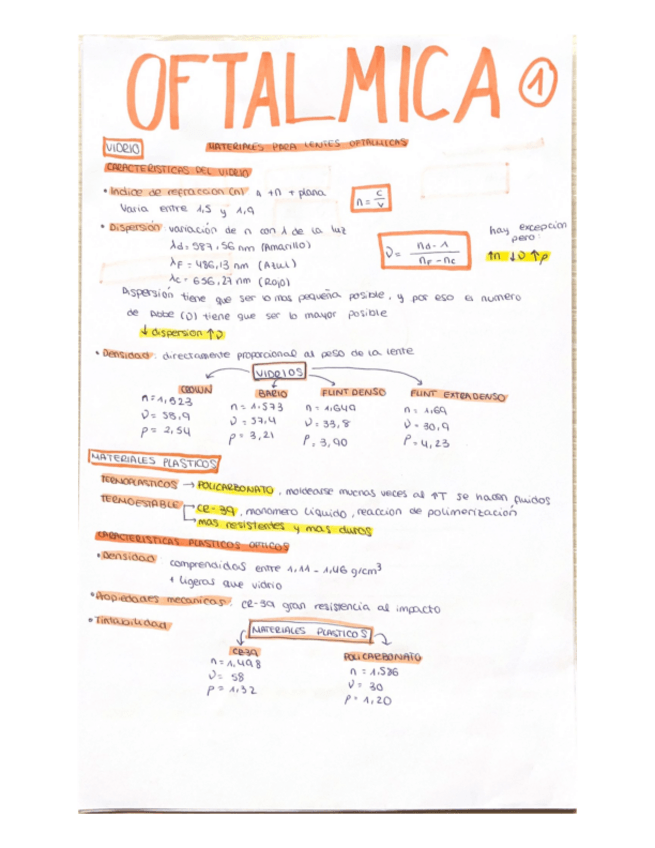 OFTALMICA 1
VIDRIO
MATERIALES PARA LENTES OFTALMICAS
CARACTERISTICAS DEL VIDRIO
• Indice de refracción (n) + n + plana
n = c/v
Varia entre 1,5 y 1,9
• Dispersión: variación de n con λ de la luz
λd = 587,56 nm (Amarillo)
λF = 486,13 nm (Azul)
λc = 656,27 nm (Rojo)
ν = nd - 1 / nF - nc
hay excepcion
pero:
↑n ↓ν ↑ρ
Dispersión tiene que ser lo mas pequeña posible, y por eso el numero
de Abbe (ν) tiene que ser lo mayor posible
↓ dispersion ↑ν
• Densidad: directamente proporcional al peso de la lente
VIDRIOS
CROWN
n = 1,523
ν = 58,9
ρ = 2,54
BARIO
n = 1,573
ν = 57,4
ρ = 3,21
FLINT DENSO
n = 1,649
ν = 33,8
ρ = 3,90
FLINT EXTRADENSO
n = 1,69
ν = 30,9
ρ = 4,23
MATERIALES PLASTICOS
TERMOPLASTICOS → POLICARBONATO, moldearse muchas veces al ↑T se hacen fluidos
TERMOESTABLE → CR-39, monomero líquido, reaccion de polimerización
→ mas resistentes y mas duros
CARACTERISTICAS PLASTICOS OPTICOS
• Densidad comprendidas entre 1,11 - 1,46 g/cm³
+ ligeras que vidrio
• Propiedades mecanicas: CR-39 gran resistencia al impacto
• Tintabilidad
MATERIALES PLASTICOS
CR-39
n = 1,498
ν = 58
ρ = 1,32
POLICARBONATO
n = 1,586
ν = 30
ρ = 1,20